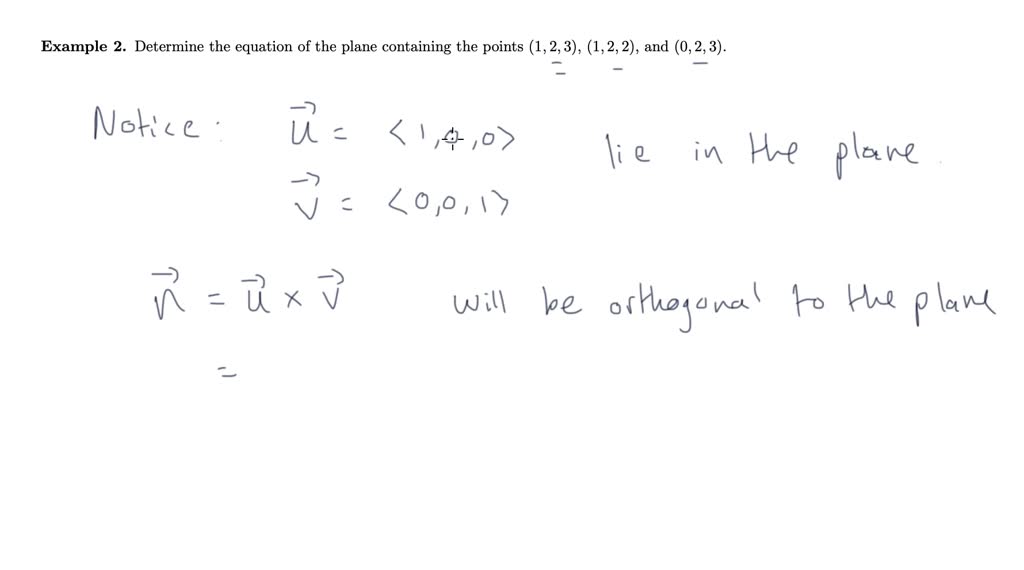 Example 2. Determine the equation of the plane containing the points (1, 2, 3), (1, 2, 2), and (0, 2, 3).
Notice: u⃗ = <1,0,0> lie in the plane.
v⃗ = <0,0,1>
n⃗ = u⃗ × v⃗ will be orthogonal to the plane
=